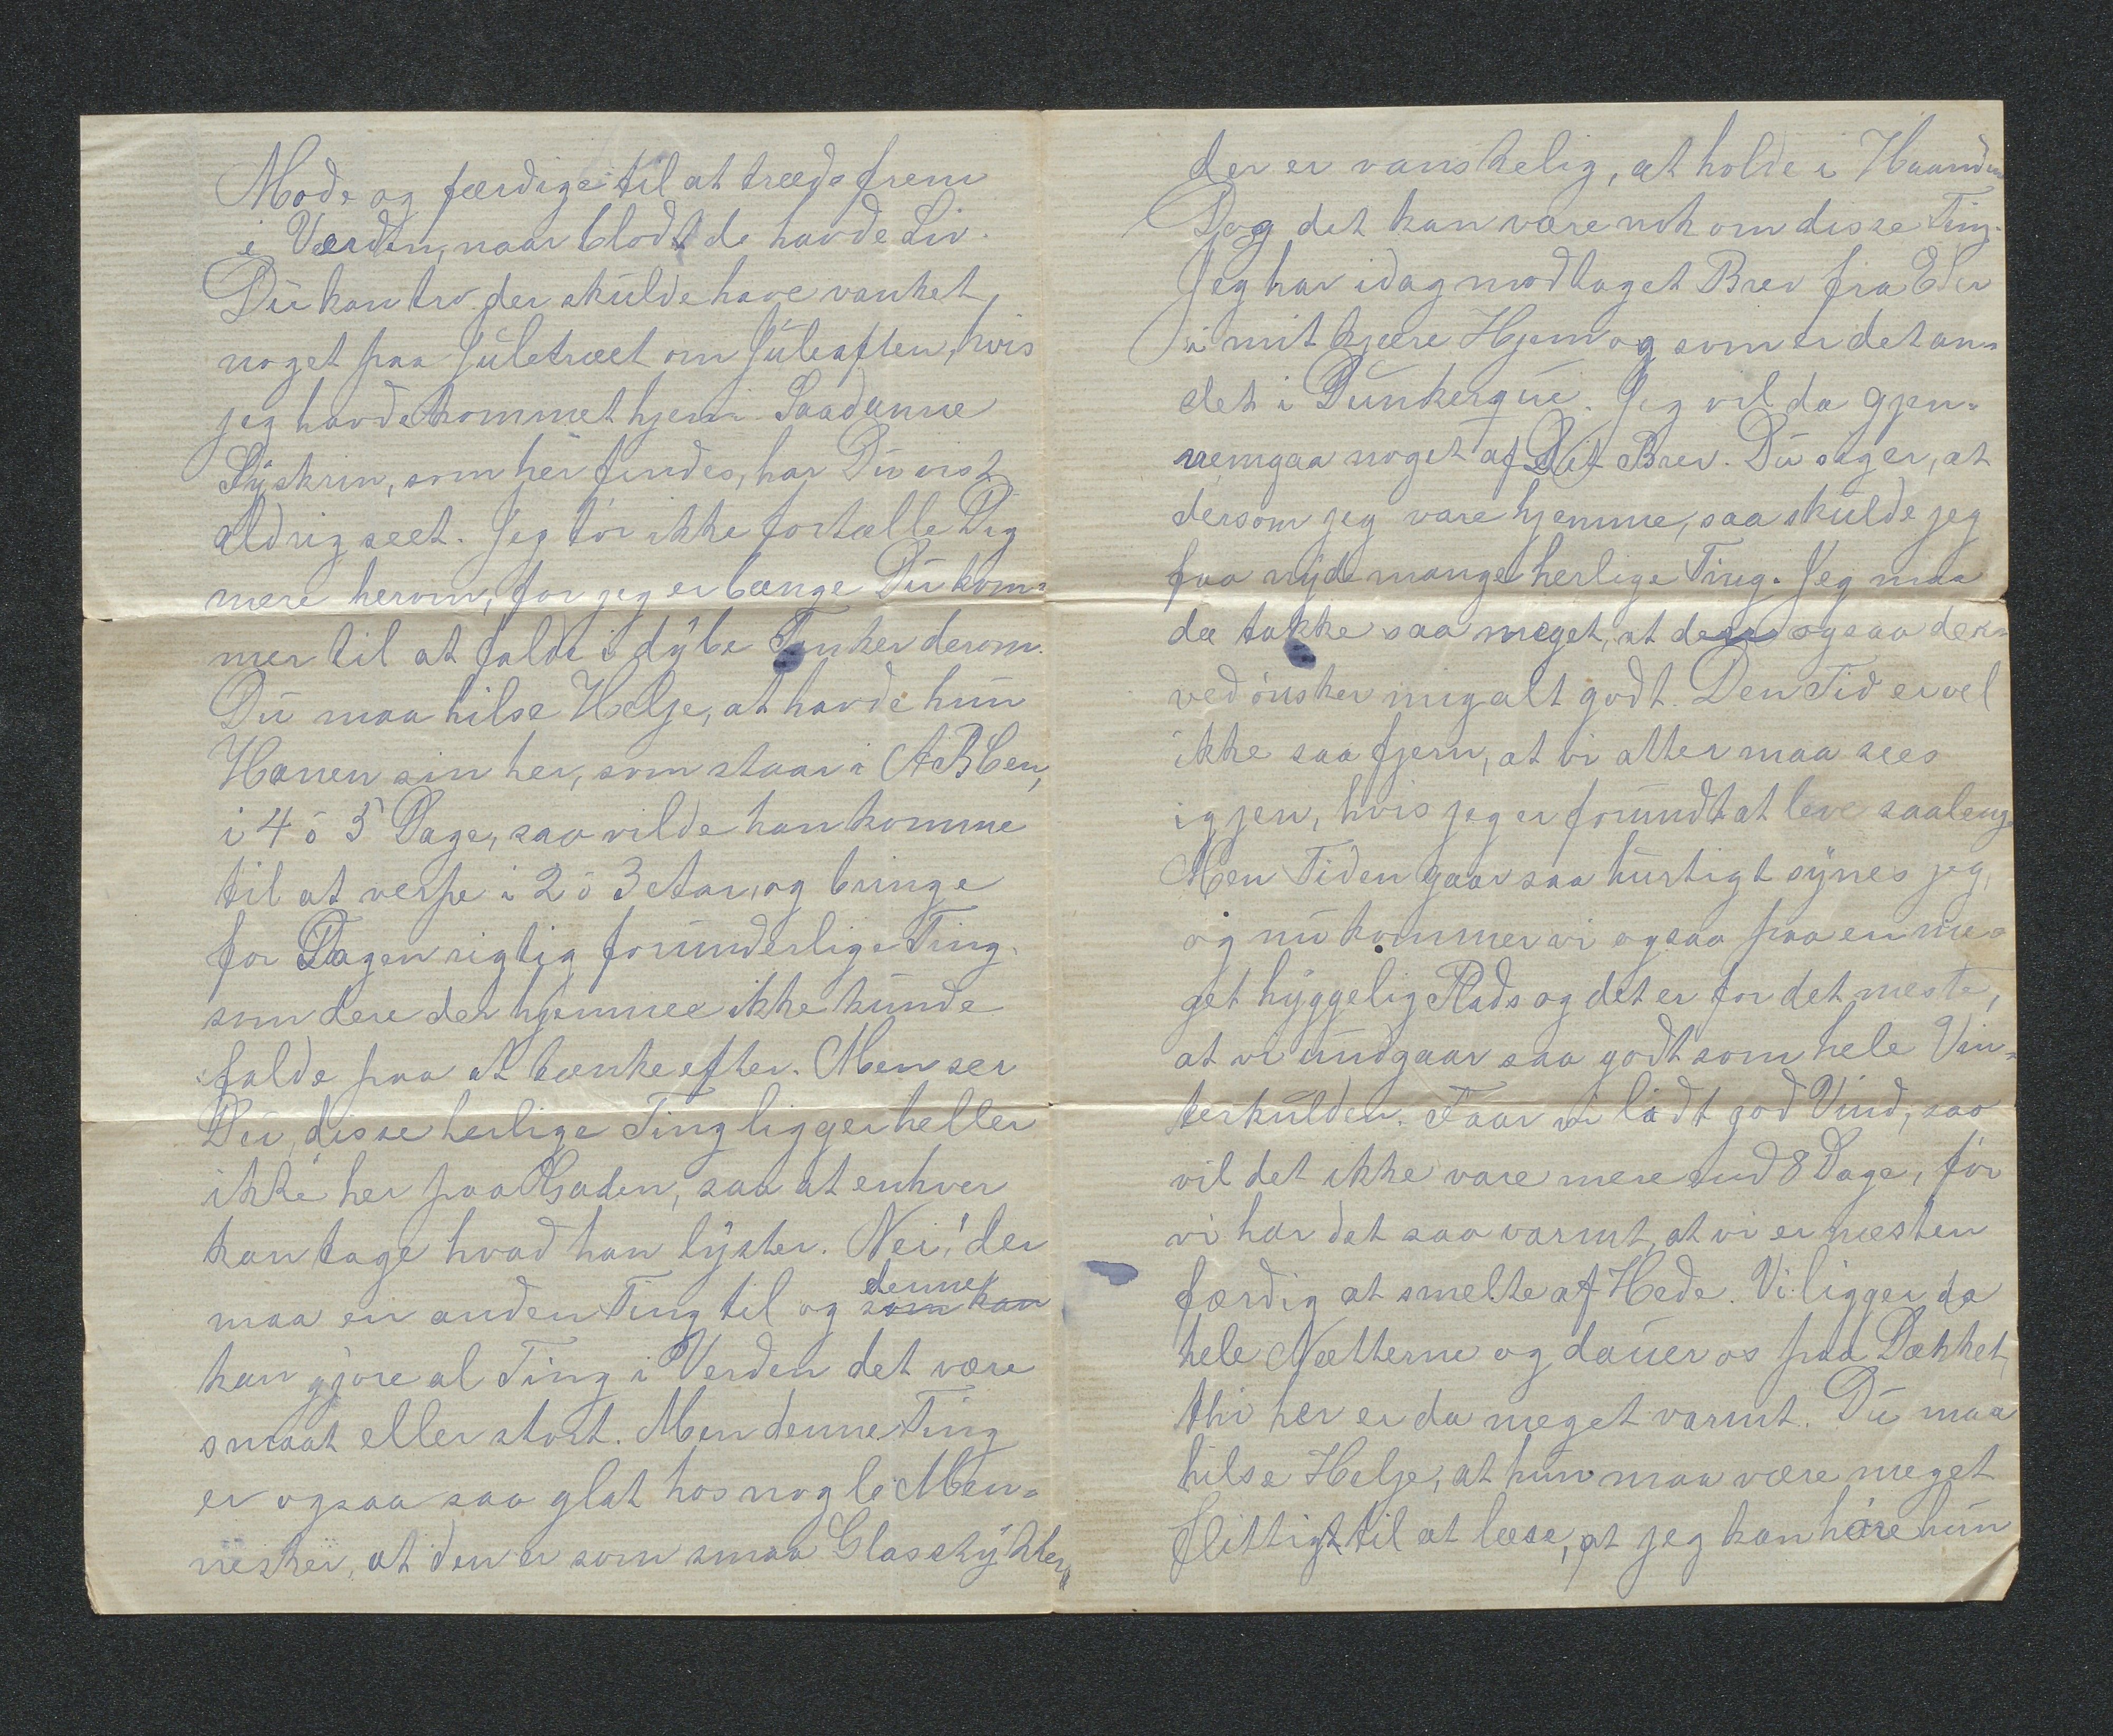 Mode og færdige til at træde frem
i Verden, naar blodt de havde Liv.
Du kan tro der skulde have vanket
noget paa Juletræet om Juleaften, hvis
jeg havde kommet hjem. Saadanne
Syskrin, som her findes, har Du vist
aldrig seet. Jeg tør ikke fortælle Dig
mere herom, for jeg er bænge Du kom-
mer til at falde i dybe Tanker derom.
Du maa hilse Helje, at havde hun
Hanen sin her, som staar i ABCen,
i 4 ó 5 Dage, saa vilde han komme
til at verpe i 2 ó 3 etar, og bringe
for Dagen rigtig forunderlige Ting.
som dere der hjemme ikke kunde
falde paa at tænke efter. Men ser
Du, disse herlige Ting ligger heller
ikke her paa Gaden, saa at enhver
kan tage hvad han lyster. Nei! der
maa en anden Ting til og som kan denne
kan gjøre al Ting i Verden det være
smaat eller stort. Men denne Ting
er ogsaa saa glat hos nogle Men-
nesker, at den er som smaa Glasstykker,
der er vanskelig, at holde i Haanden
Dog det kan være nok om disse Ting.
Jeg har idag modtaget Brev fra Eder
i mit kjære Hjem og som er det an-
det i Dunkerque. Jeg vil da gjen-
nemgaa noget af Dit Brev. Du siger, at
dersom jeg vare hjemme, saa skulde jeg
faa nyde mange herlige Ting. Jeg maa
da takke saa meget, at dere ogsaa der-
ved ønsker mig alt godt. Den Tid er vel
ikke saa fjern, at vi atter maa sees
igjen, hvis jeg er forundt at leve saalenge
Men Tiden gaar saa hurtigt synes jeg,
og nu kommer vi ogsaa paa en me-
get hyggelig Plads og det er for det meste,
at vi undgaar saa godt som hele Vin-
terkulden. Faar vi lidt god Vind, saa
vil det ikke vare mere end 8 Dage, før
vi har det saa varmt, at vi er næsten
færdig at smelte af Hede. Vi ligger da
hele Nætterne og dauer os paa Dækket,
thi her er da meget varmt. Du maa
hilse Helje, at hun maa være meget
flittigt til at læse, at jeg kan høre hun